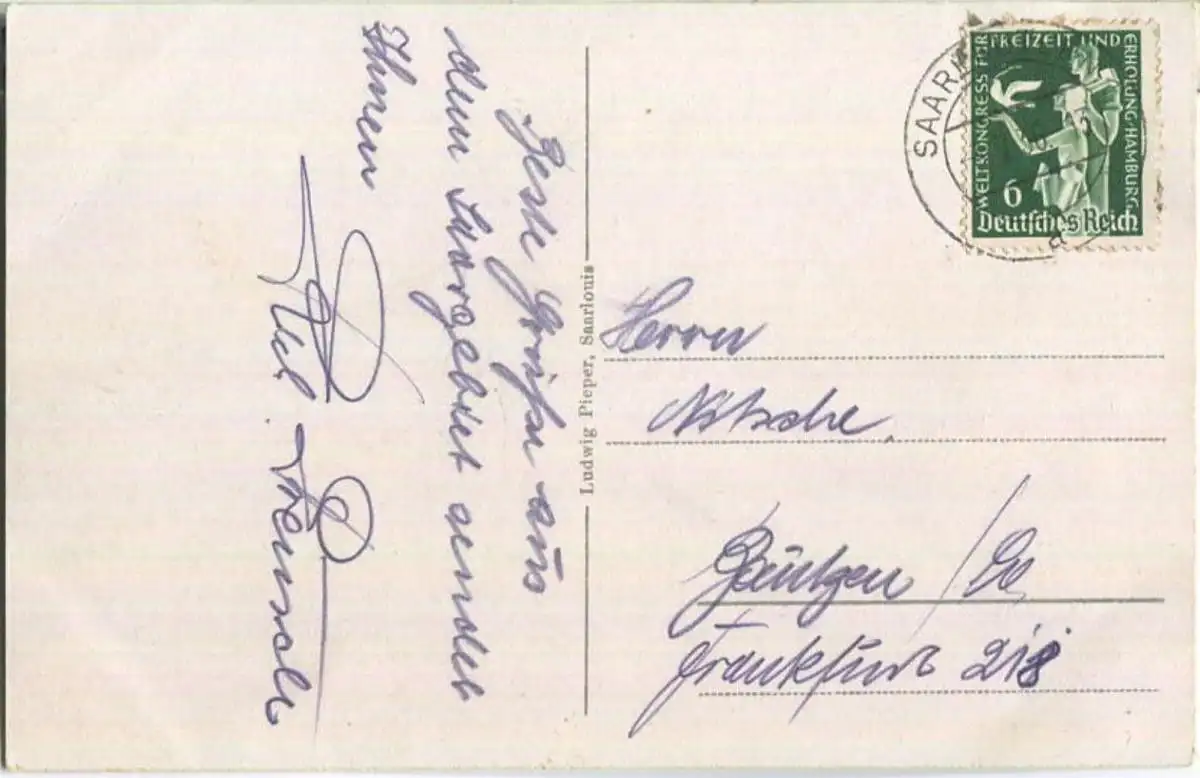 Beste Grüße aus
dem Saargebiet sendet
Ihnen
Ludwig Pieper, Saarlouis
SAAR
WELTKONGRESS FÜR
FREIZEIT UND
ERHOLUNG·HAMBURG
6
Deutsches Reich
Herrn
Nitsche
Bautzen /
Frankfurt